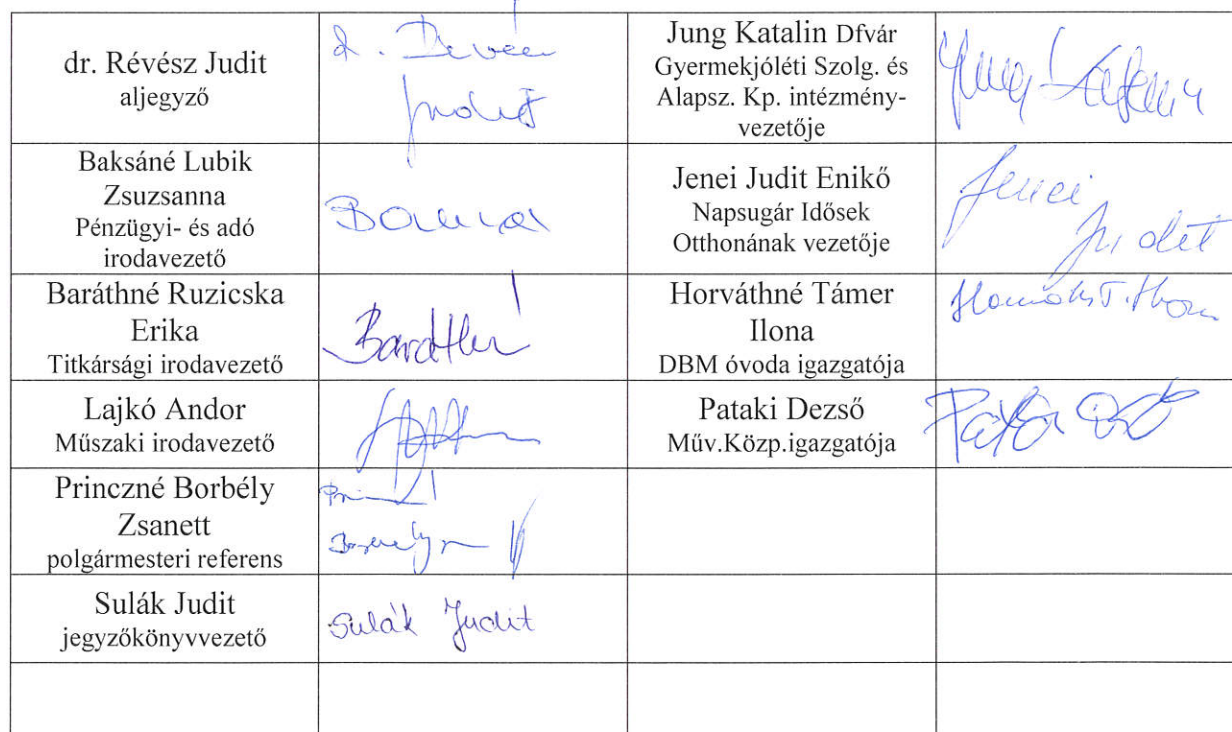 dr. Révész Judit
aljegyző
Jung Katalin Dfvár
Gyermekjóléti Szolg. és
Alapsz. Kp. intézmény-
vezetője
Baksáné Lubik
Zsuzsanna
Pénzügyi- és adó
irodavezető
Jenei Judit Enikő
Napsugár Idősek
Otthonának vezetője
Jenei
Judit
Baráthné Ruzicska
Erika
Titkársági irodavezető
Horváthné Támer
Ilona
DBM óvoda igazgatója
Lajkó Andor
Műszaki irodavezető
Pataki Dezső
Műv.Közp.igazgatója
Princzné Borbély
Zsanett
polgármesteri referens
Sulák Judit
jegyzőkönyvvezető
Sulák Judit